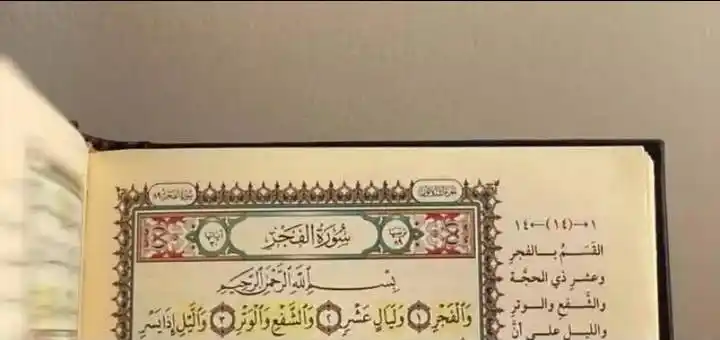 سورة الفجر ٨٩
سُورَةُ الفَجْرِ
بِسْمِ اللَّهِ الرَّحْمَٰنِ الرَّحِيمِ
وَالْفَجْرِ ١ وَلَيَالٍ عَشْرٍ ٢ وَالشَّفْعِ وَالْوَتْرِ ٣ وَاللَّيْلِ إِذَا يَسْرِ
١←(١٤)→١٤
القَسَمُ بالفجرِ
وعشرِ ذي الحجَّة
والشَّفعِ والوترِ
والليلِ على أنَّ